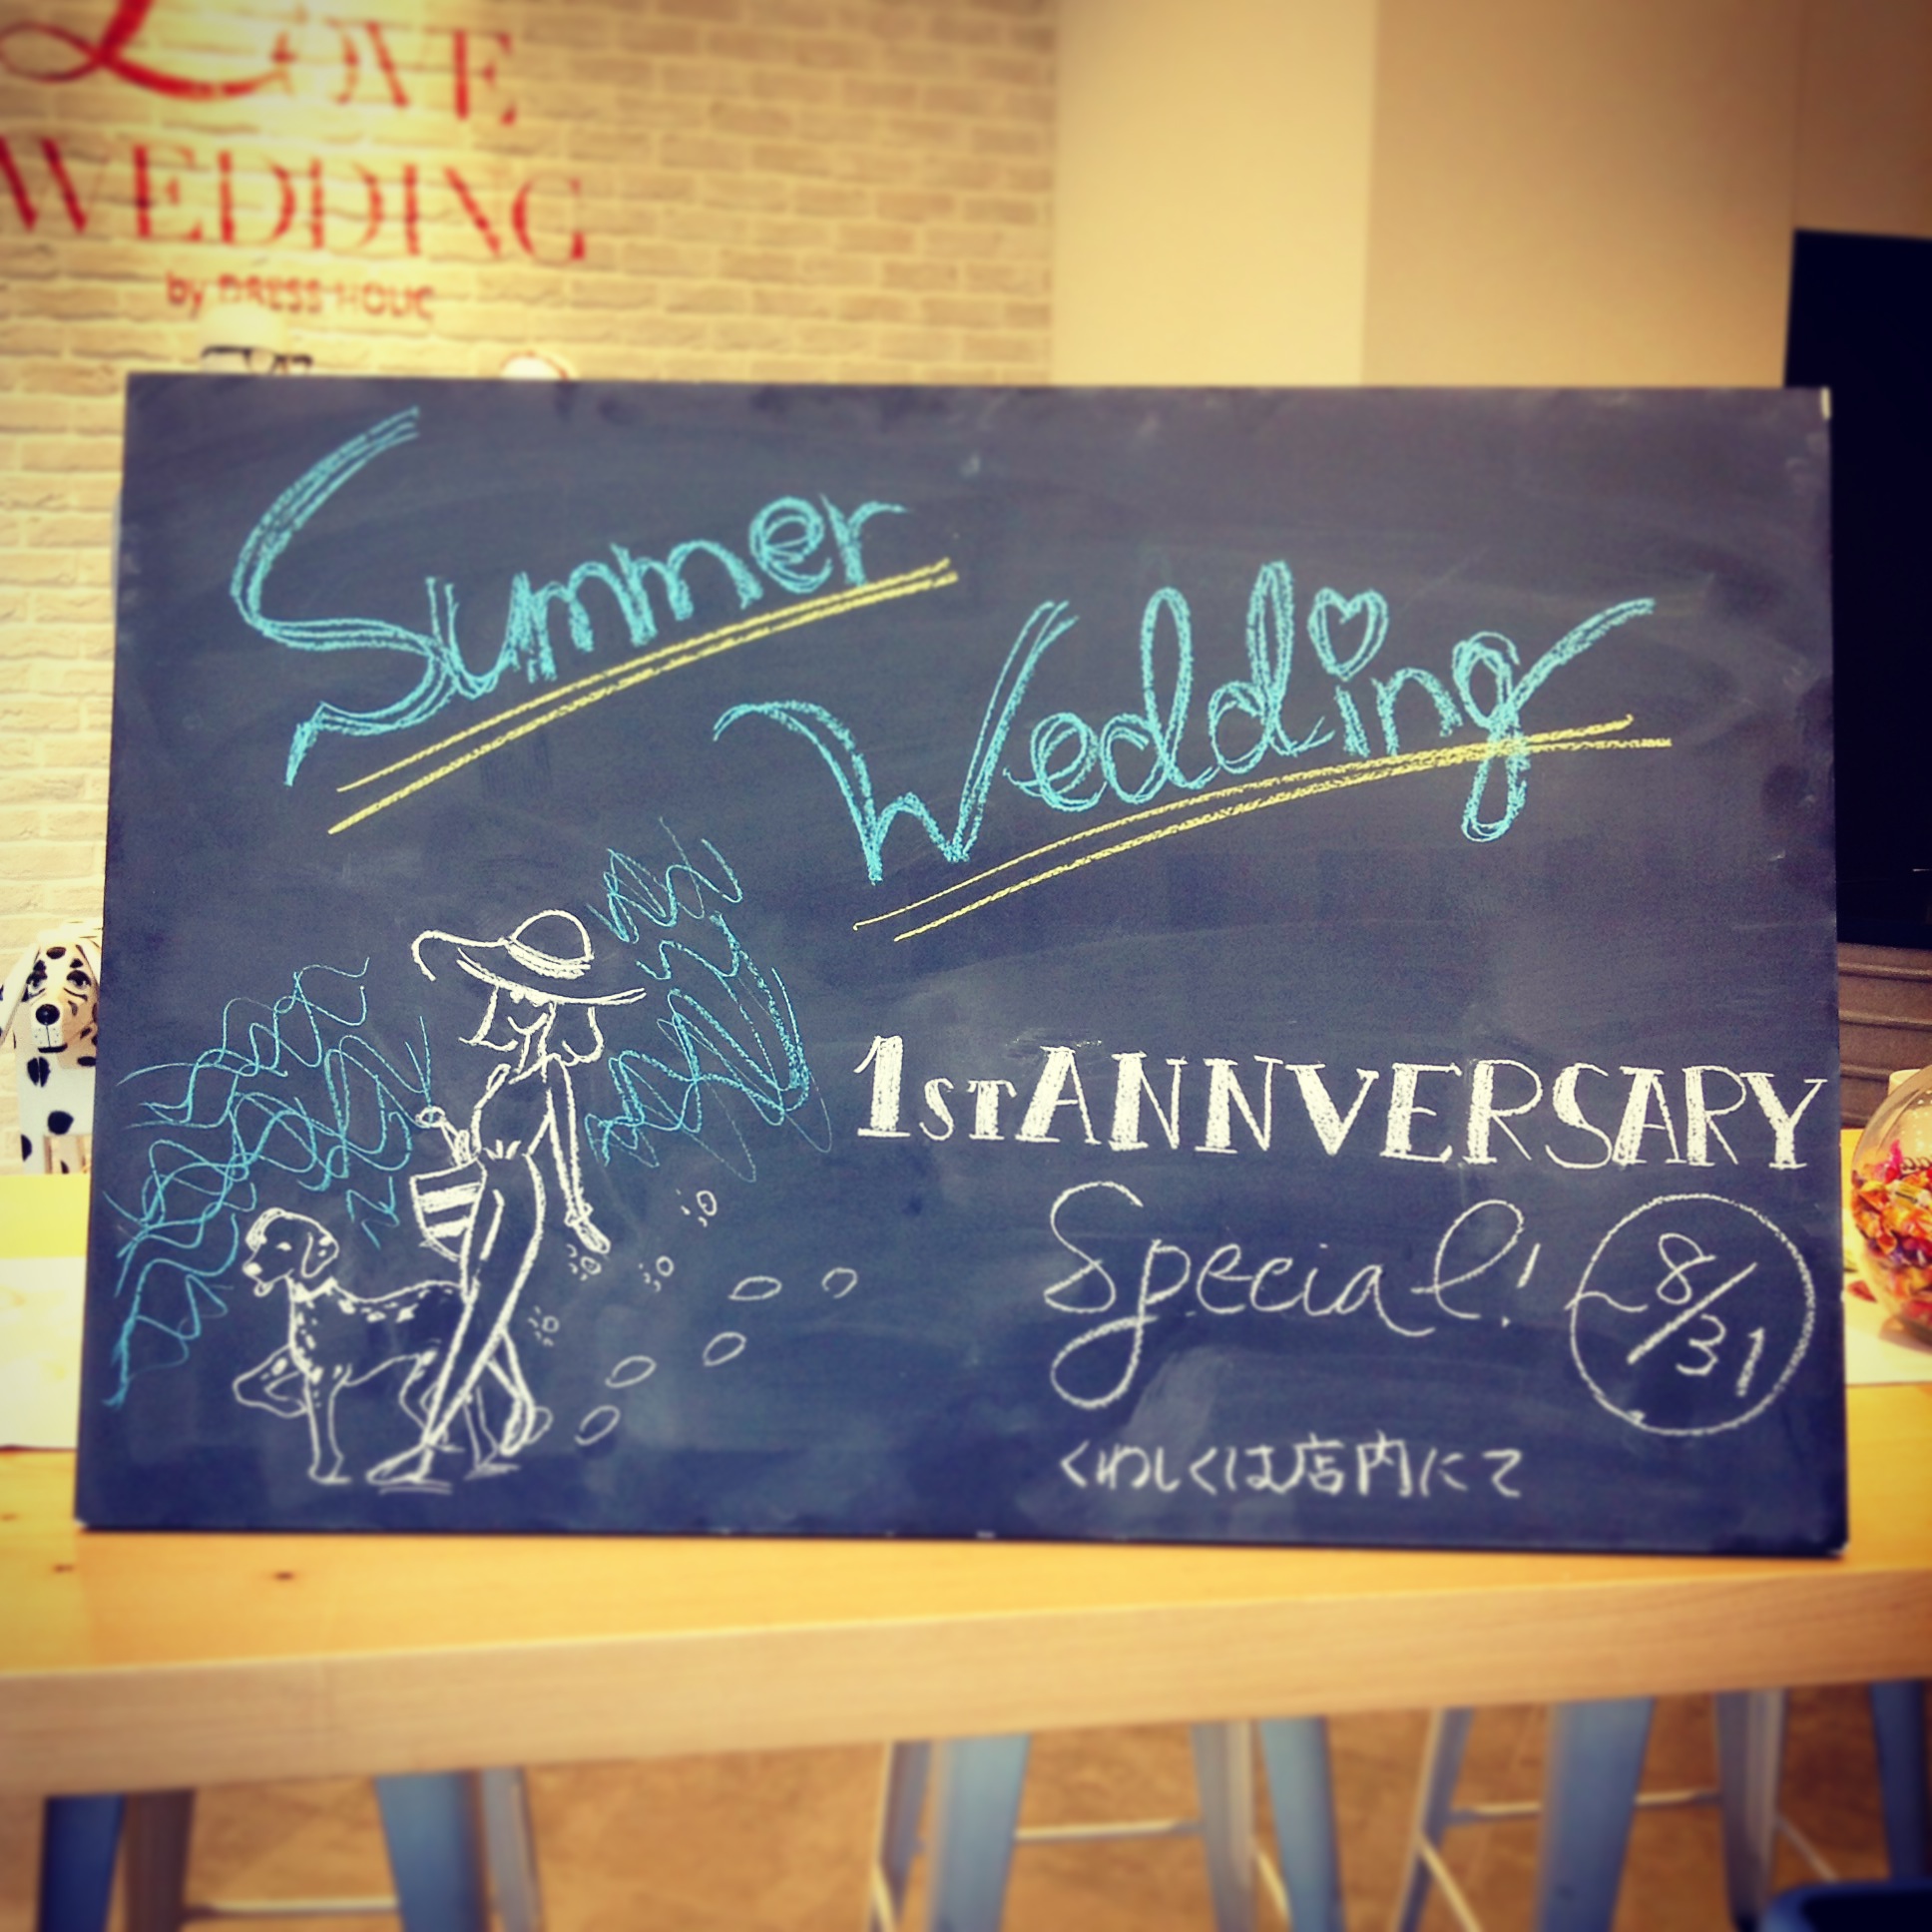 LOVE
WEDDING
by DRESS HOLIC
Summer
Wedding
1ST ANNVERSARY
Special!
~8/31
くわしくは店内にて